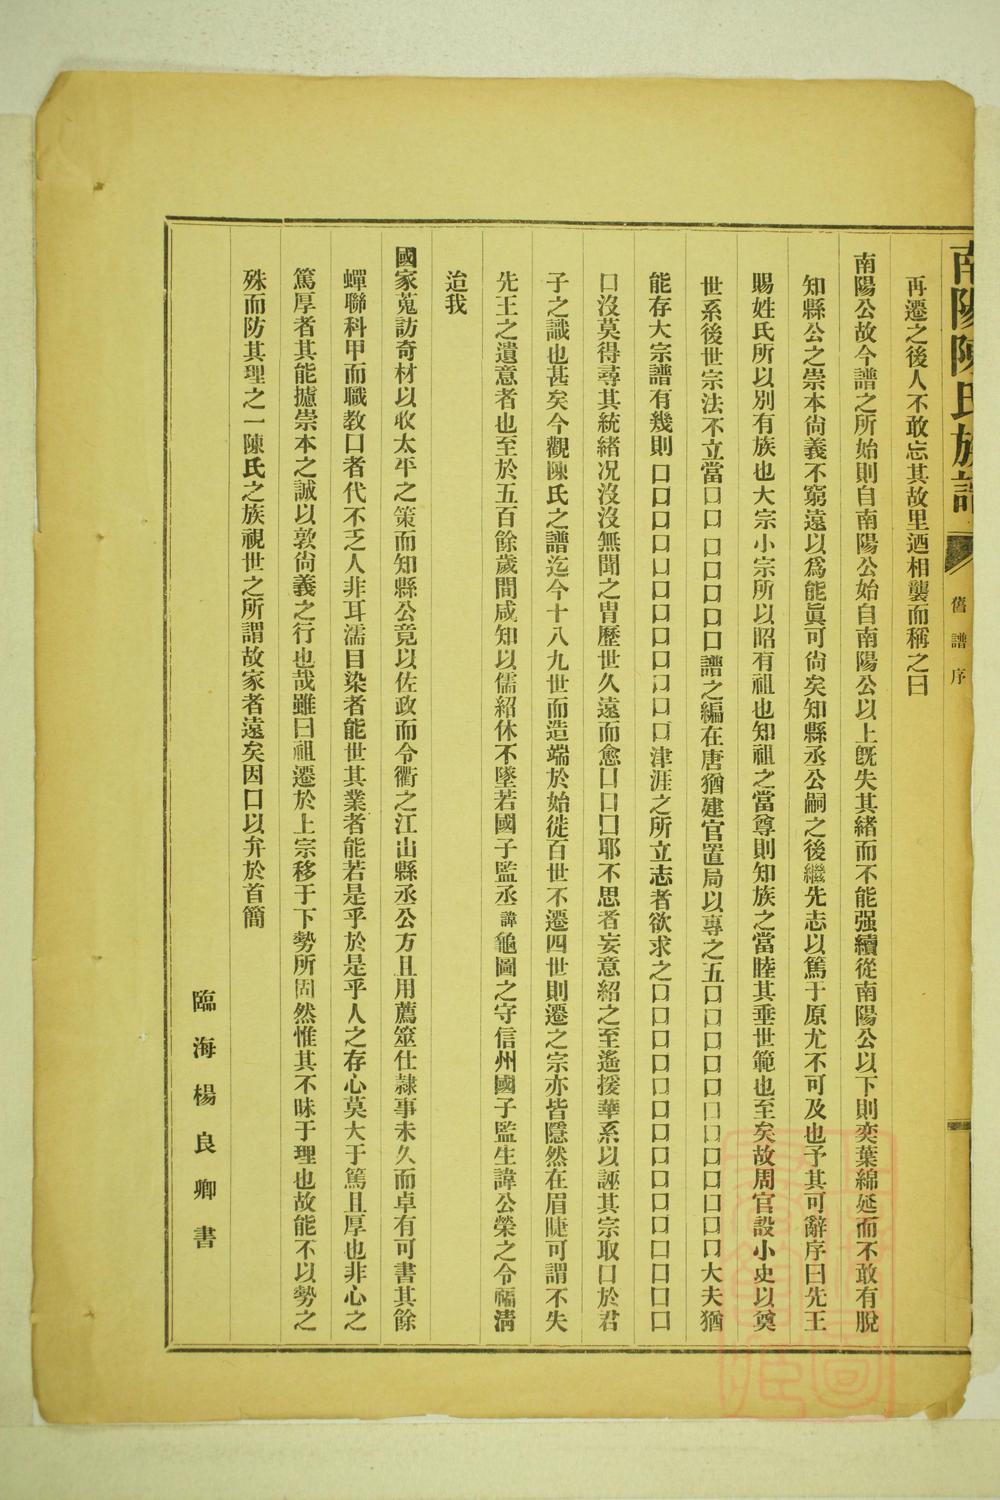 南陽陳氏族譜
舊譜序
再遷之後人不敢忘其故里迺相襲而稱之曰
南陽公故今譜之所始則自南陽公始自南陽公以上旣失其緒而不能强續從南陽公以下則奕葉綿延而不敢有脫
知縣公之崇本尙義不窮遠以爲能眞可尙矣知縣丞公嗣之後繼先志以篤于原尤不可及也予其可辭序曰先王
賜姓氏所以別有族也大宗小宗所以昭有祖也知祖之當尊則知族之當睦其垂世範也至矣故周官設小史以奠
世系後世宗法不立當口口口口口口口譜之編在唐猶建官置局以專之五口口口口口口口口口口口口大夫猶
能存大宗譜有幾則口口口口口口口口口口口口津涯之所立志者欲求之口口口口口口口口口口口口口口口
口沒莫得尋其統緖况沒沒無聞之胄歷世久遠而愈口口口耶不思者妄意紹之至遙援華系以誣其宗取口於君
子之識也甚矣今觀陳氏之譜迄今十八九世而造端於始徙百世不遷四世則遷之宗亦皆隱然在眉睫可謂不失
先王之遺意者也至於五百餘歲間咸知以儒紹休不墜若國子監丞諱龜圖之守信州國子監生諱公榮之令福淸
治我
國家蒐訪奇材以收太平之策而知縣公竟以佐政而令衢之江山縣丞公方且用薦筮仕隷事未久而卓有可書其餘
蟬聯科甲而職教口者代不乏人非耳濡目染者能世其業者能若是乎於是乎人之存心莫大于篤且厚也非心之
篤厚者其能攄崇本之誠以敦尙義之行也哉雖曰祖遷於上宗移于下勢所固然惟其不昧于理也故能不以勢之
殊而防其理之一陳氏之族視世之所謂故家者遠矣因口以弁於首簡
臨海楊良卿書